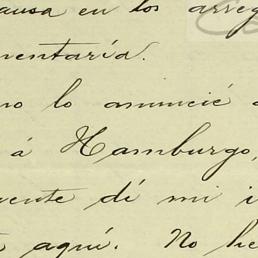 ausa en los arreg
mentaría.
mo lo anuncié a
á Hamburgo,
vente dí mi i
aquí. No he